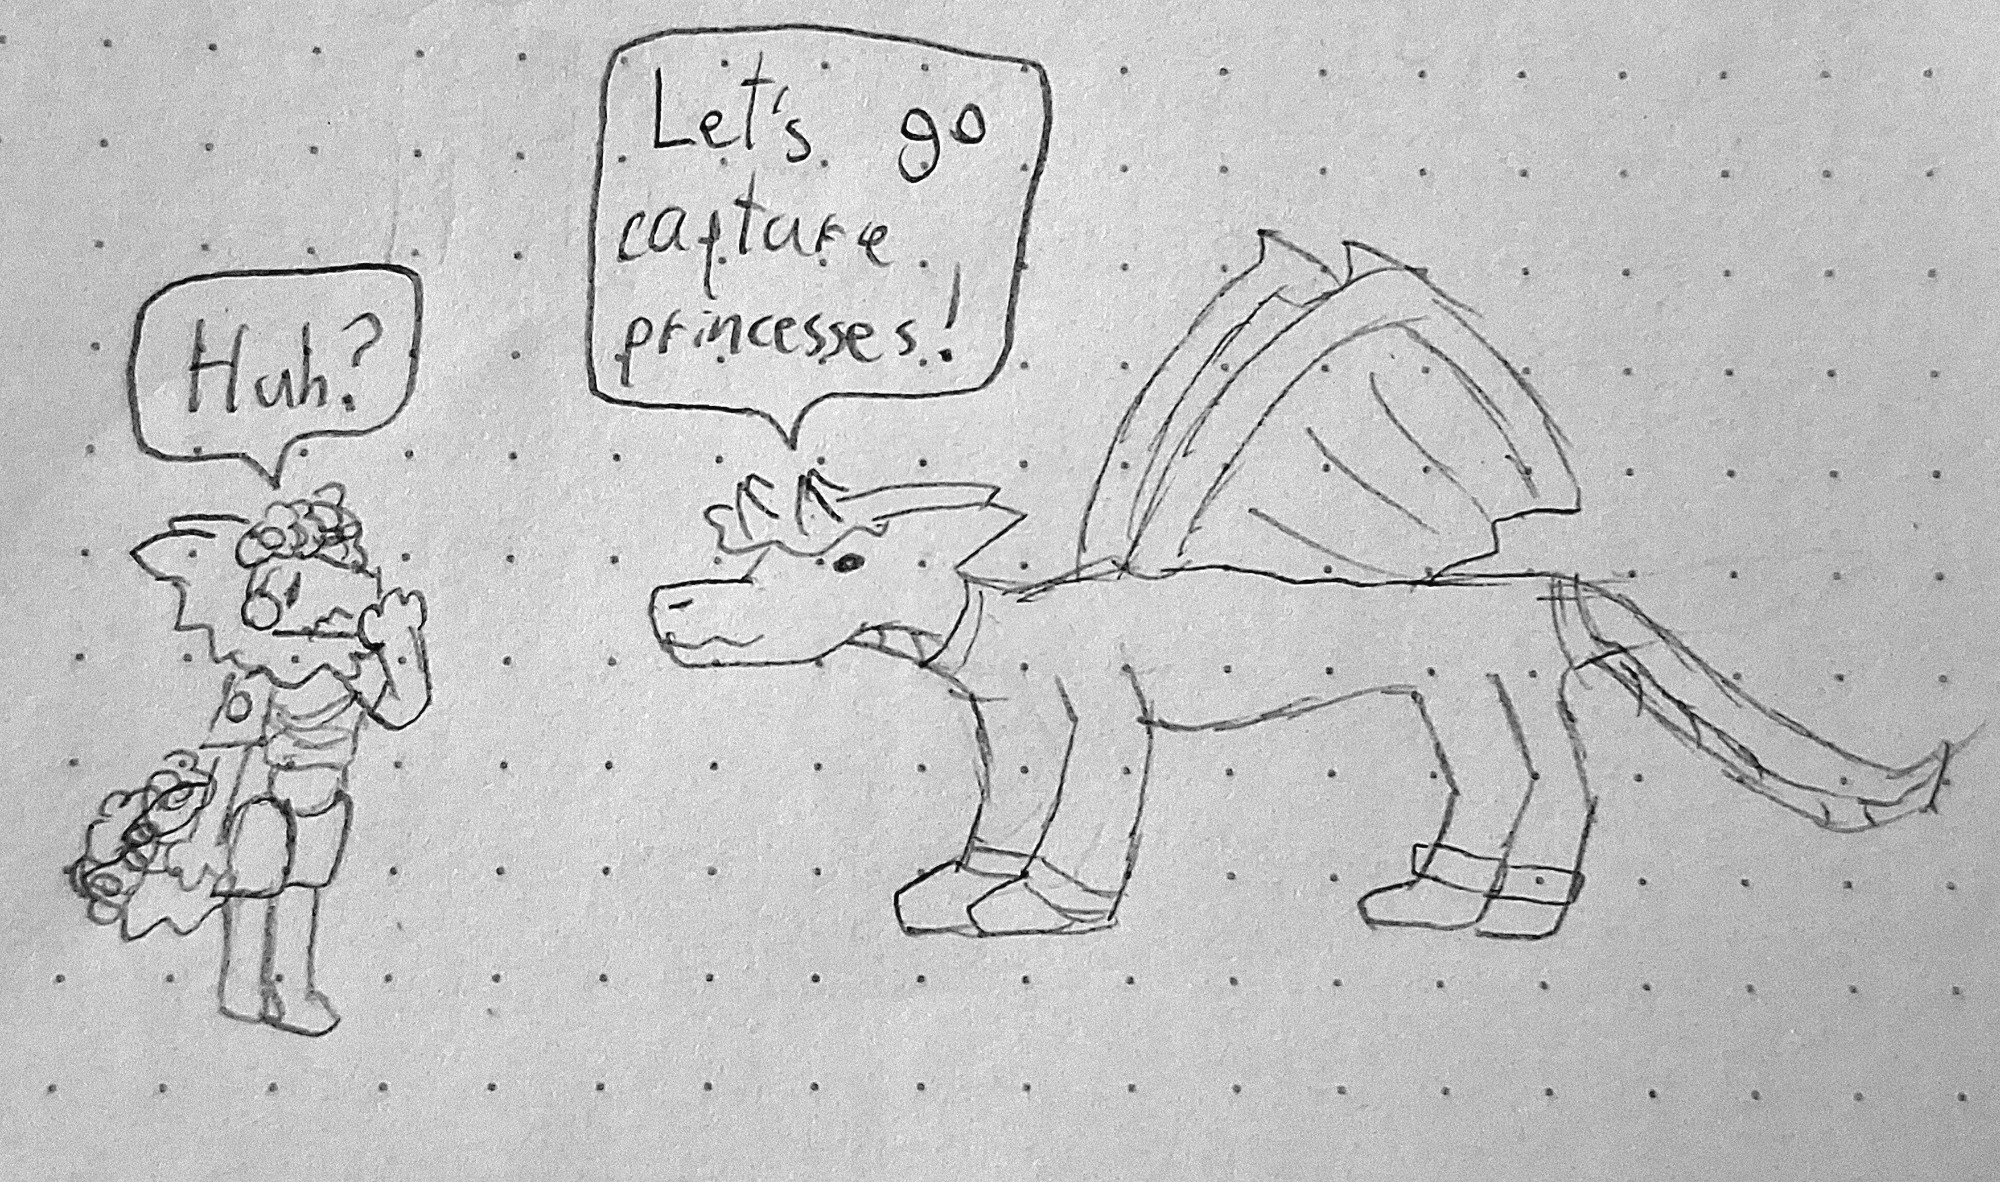 Huh?
Let's go
capture
princesses!